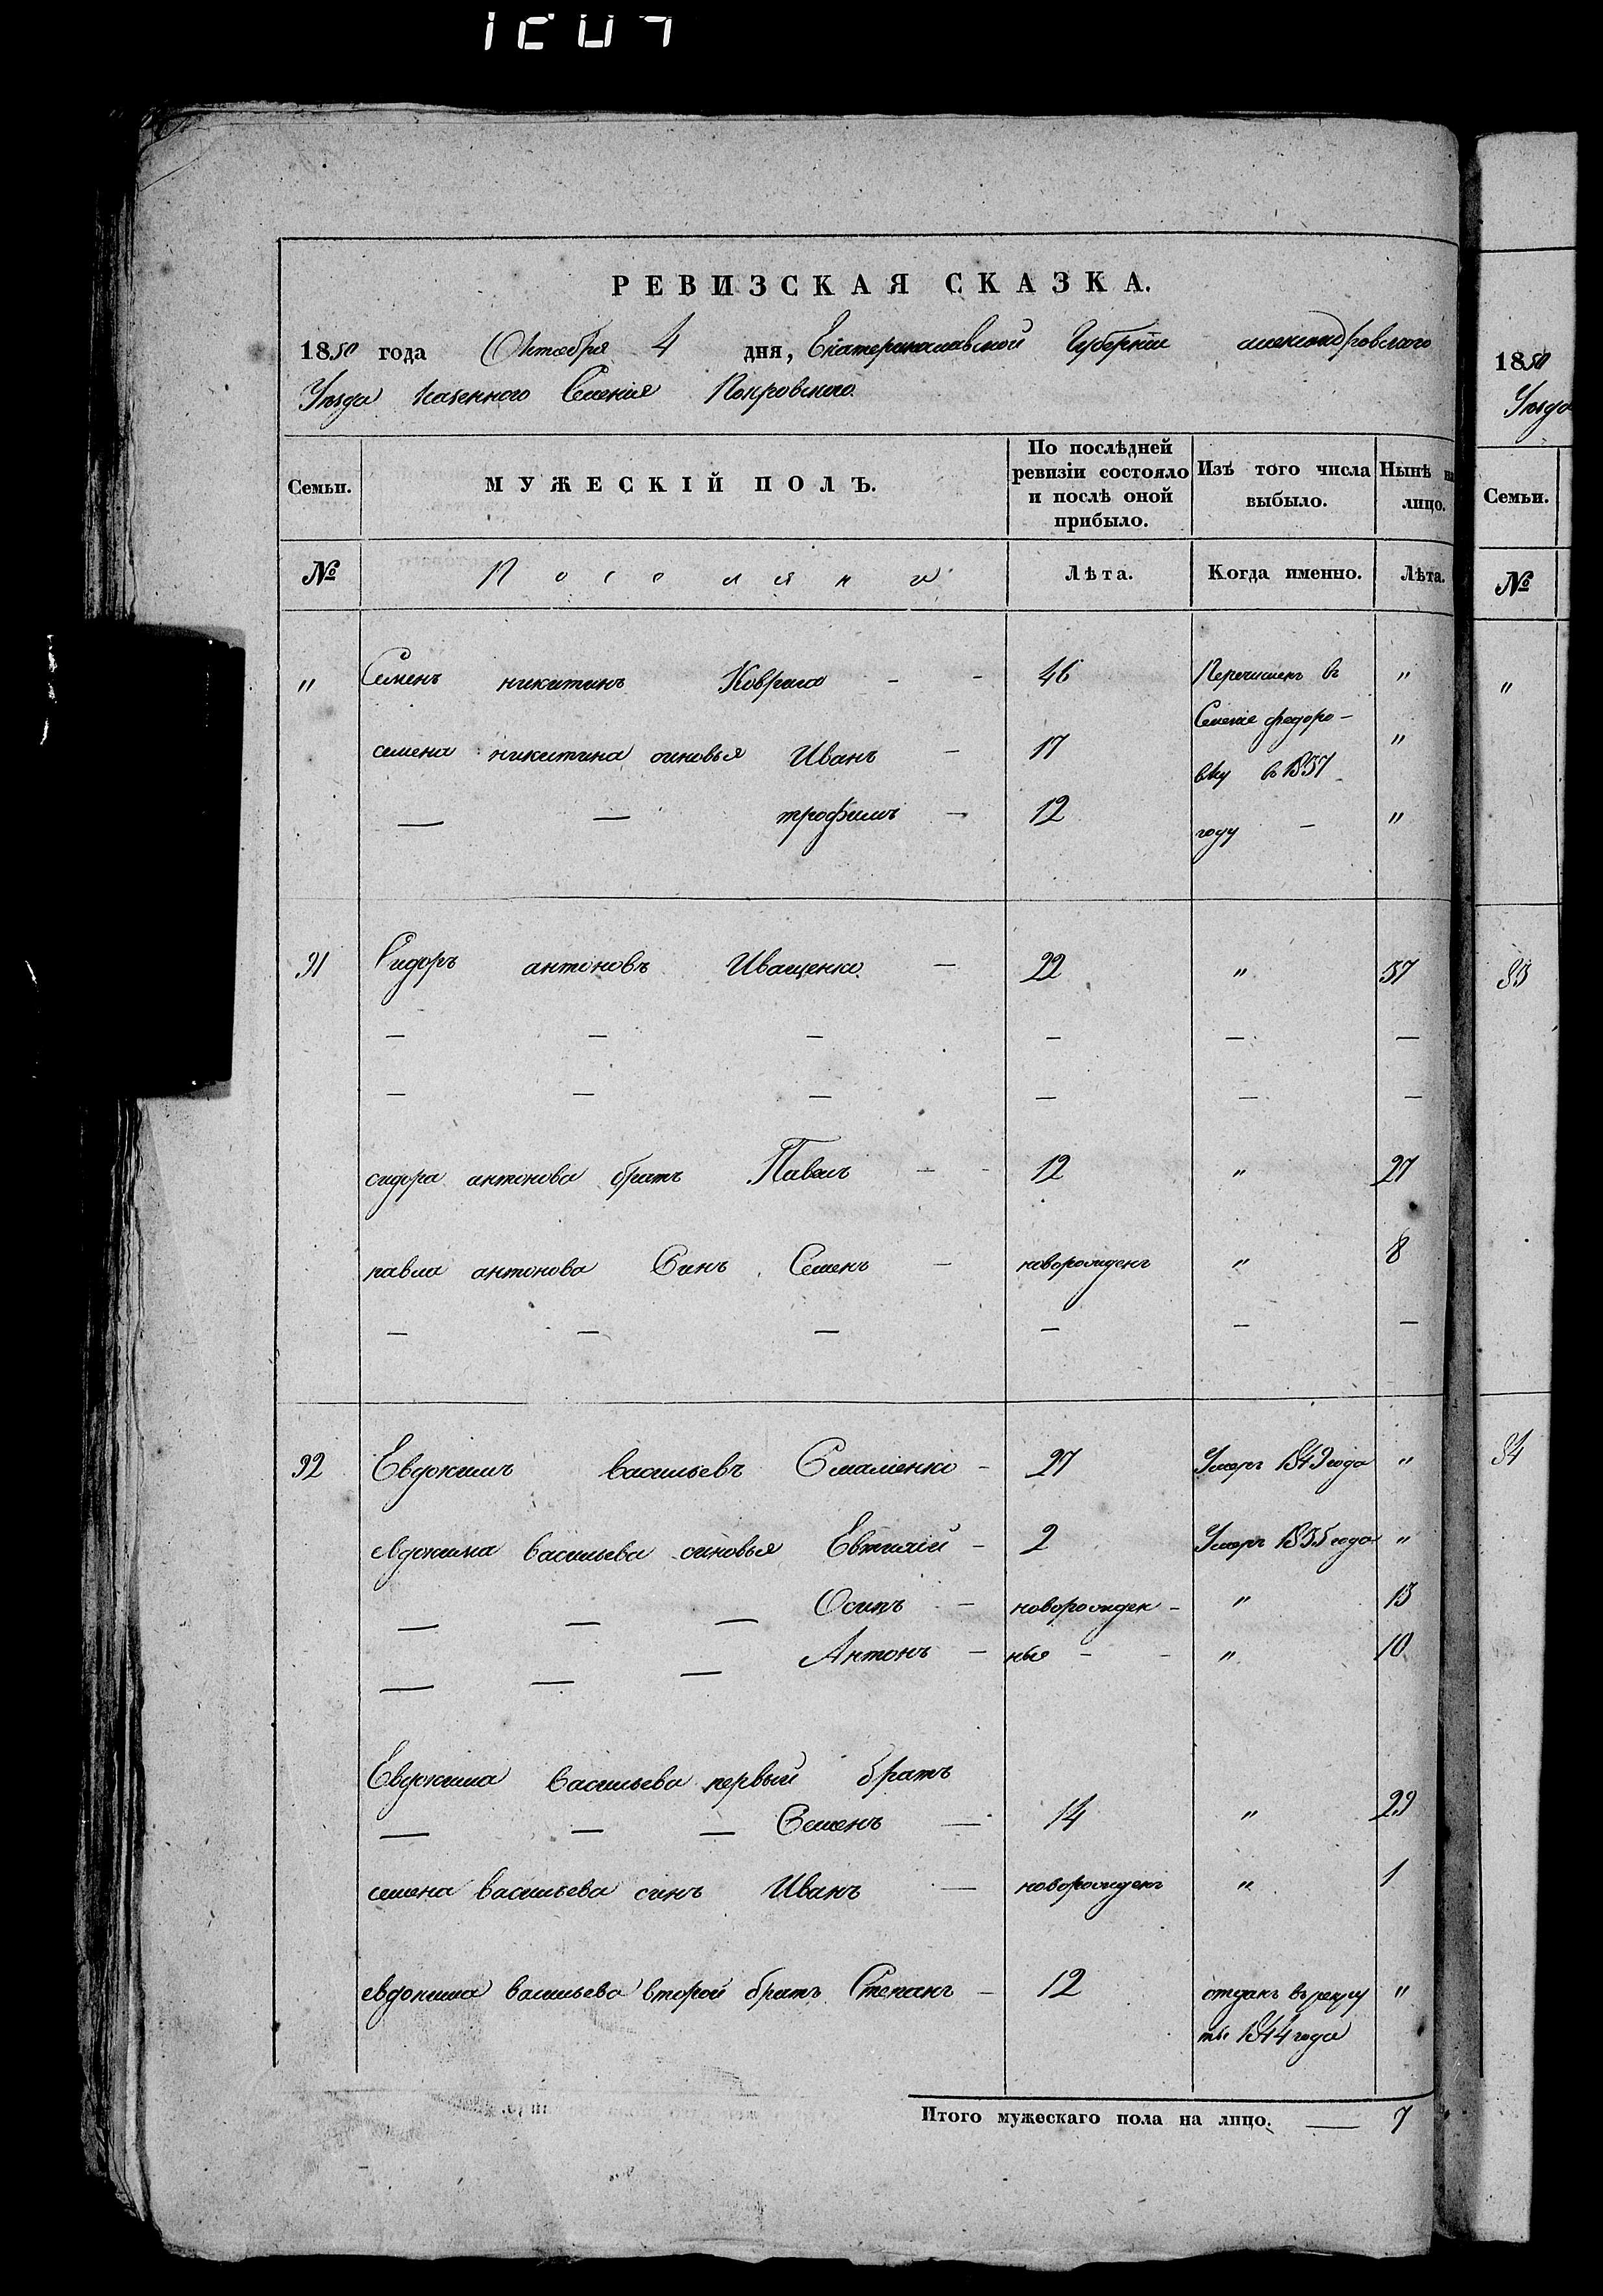 РЕВИЗСКАЯ СКАЗКА.
1850 года Октября 4 дня, Екатеринославской Губернии александровского
Уезда Казенного Селения Покровского
Семьи.
МУЖЕСКІЙ ПОЛЪ.
По послѣдней ревизіи состояло и послѣ оной прибыло.
Изъ того числа выбыло.
Нынѣ на лицо.
№ Поселяни Лѣта. Когда именно. Лѣта.
" Семенъ никитинъ - - 46 Перечислен в "
Селение федоро-
семена никитина синовья Иванъ - 17 "
вку в 1837
— — трофимъ - 12 году - "
91 Сидоръ антоновъ Иващенко - 22 " 37
— — — — — —
— — — — — —
сидора антонова братъ Павелъ - - 12 " 27
павла антонова Синъ Семенъ - новорожденъ " 8
— — — — — —
92 Евдокимъ васильевъ - 27 Умеръ 1849 года "
евдокима васильева синовья Евтихий - 2 Умеръ 1835 года "
— — — Осипъ - новорожден- " 13
— — — Антонъ - ныя - - " 10
Евдокима васильева первый братъ
— — — Семенъ — 14 " 29
семена васильева синъ Иванъ — новорожденъ " 1
евдокима васильева второй братъ Степанъ - 12 отданъ в рекру "
ты 1844 года
Итого мужескаго пола на лицо. — 7
1850
Уезда
Семьи.
№
"
83
84